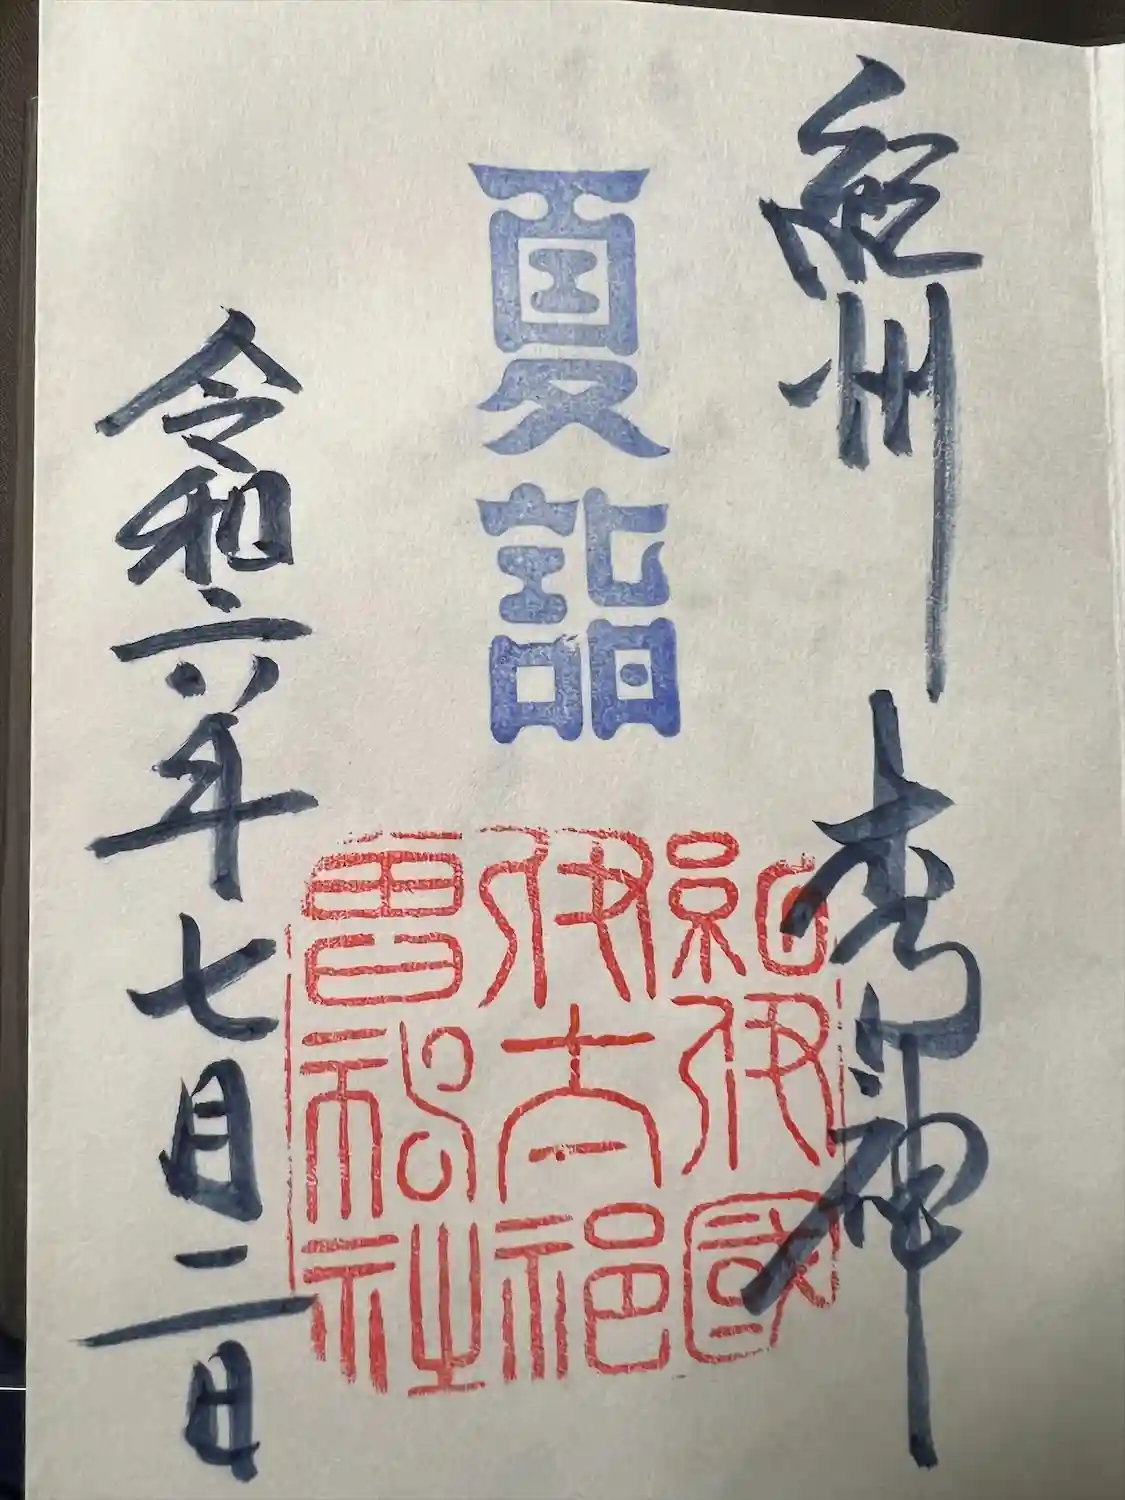 紀州 木乃神
夏詣
紀伊國
伊太祁
曾神社
令和六年七月二日